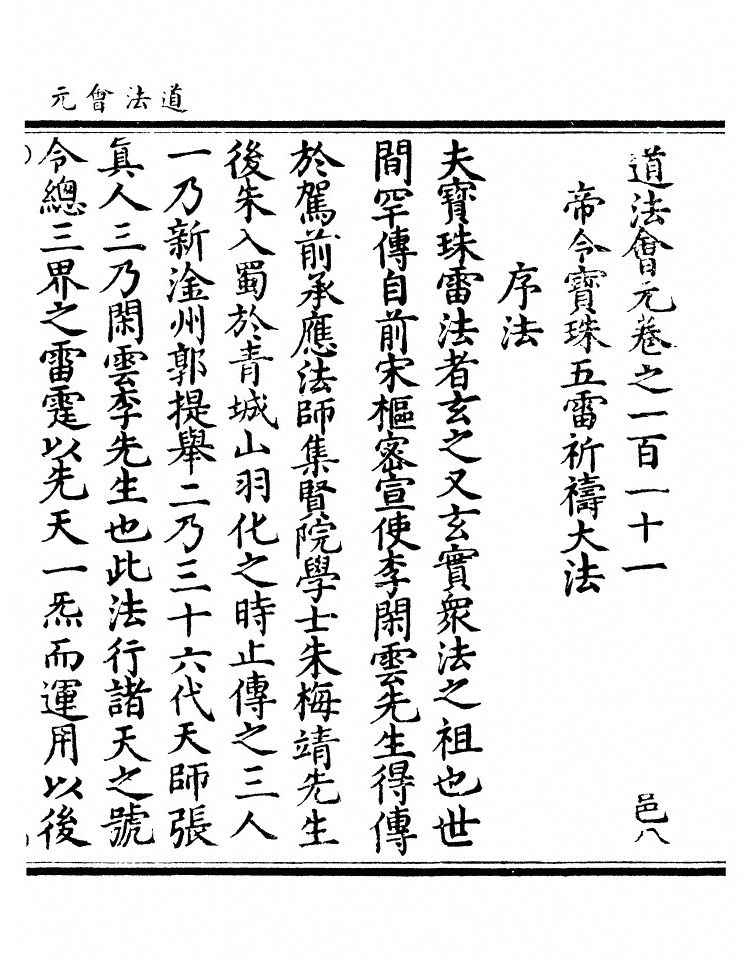 道法會元
道法會元卷之一百一十一
邑八
帝令寶珠五雷祈禱大法
序法
夫寶珠雷法者玄之又玄實衆法之祖也世
間罕傳自前宋樞密宣使李閑雲先生得傳
於駕前承應法師集賢院學士朱梅靖先生
後朱入蜀於青城山羽化之時止傳之三人
一乃新淦州郭提舉二乃三十六代天師張
眞人三乃閑雲李先生也此法行諸天之號
令總三界之雷霆以先天一炁而運用以後